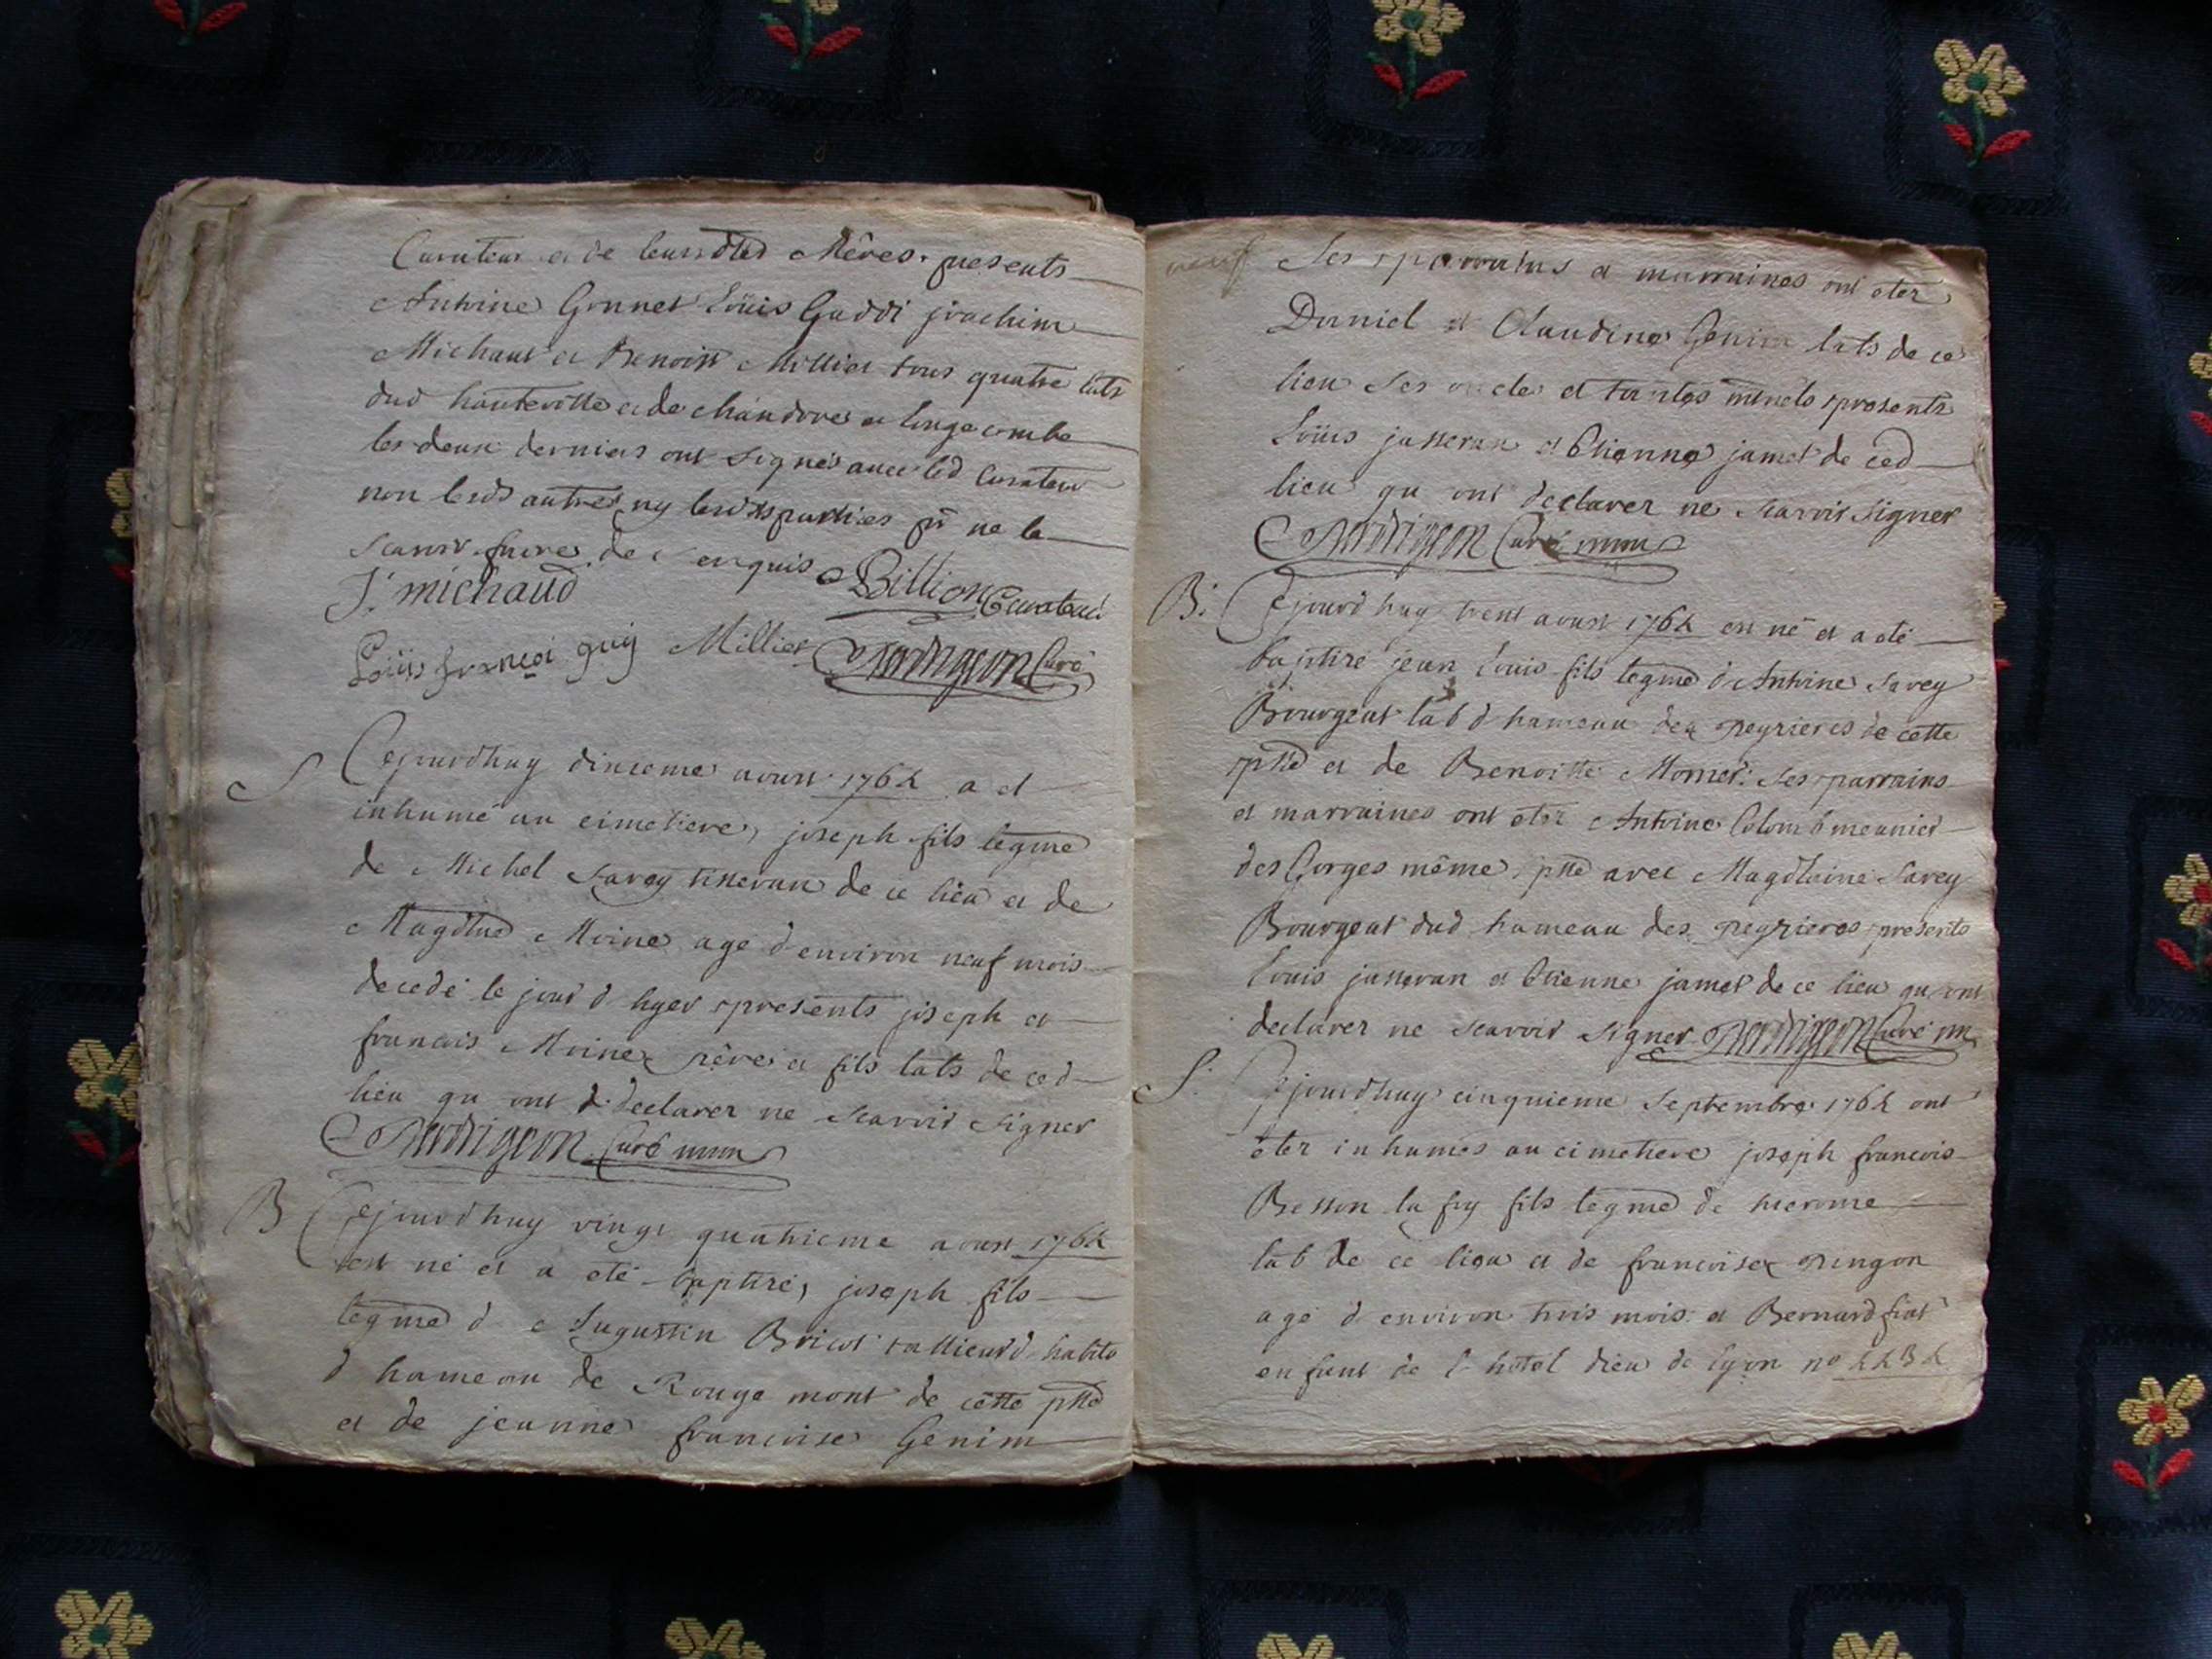 Curateur et de leursdtes Mêres. presents
Antoine Gonnet Loüis Guddi joachim
Michaut et Benoist Milliet tous quatre labts
dud hauteville et de chandore et longecombe
les deux derniers ont signés avec led Curateur
non lesds autres ny lesdts parties pr ne le
scavoir faire de ce enquis Billion Curateur
J. michaud
Loüis françoi guy Milliet Curé
S Cejourdhuy dixieme aoust 1764 a et
inhumé au cimetiere, joseph fils legme
de Michel Savey tisseran de ce lieu et de
Magdlne Moine agé denviron neuf mois
decedé le jour d hyer presents joseph et
francois Moine pêre et fils labts de ced
lieu qu ont d. declarer ne scavoir signer
Curé
B Cejourdhuy vingt quatrieme aoust 1764
est né et a eté baptiré, joseph fils
legme d Augustin Bricot tallieur d habits
d hameau de Rouge mont de cette psse
et de jeanne francoise Genim
Ses parrains et marraines ont eter
Daniel et Claudine Genim labts de ce
lieu ses oncle et tantes presents
Loüis jasseran et Etienne jamet de ced
lieu qu ont declarer ne scavoir signer
Curé
B: Cejourdhuy trent aoust 1764 est né et a eté
baptiré jean Louis fils legme d Antoine Savey
Bourgeat lab d hameau des peyrieres de cette
psse et de Benoitte Mornet: Ses parrains
et marraines ont eter Antoine Colomb meunier
des Gorges même psse avec Magdlaine Savey
Bourgeat dud hameau des peyrieres presents
Louis jasseran et Etienne jamet de ce lieu qu ont
declarer ne scavoir signer Curé
S. Cejourdhuy cinquieme Septembre 1764 ont
êter inhumés au cimetiere joseph francois
Besson la fry fils legme de hierome
lab de ce lieu et de francoise pingon
agé d environ trois mois et Bernard fiat
enfant de l hotel dieu de lyon no 4434